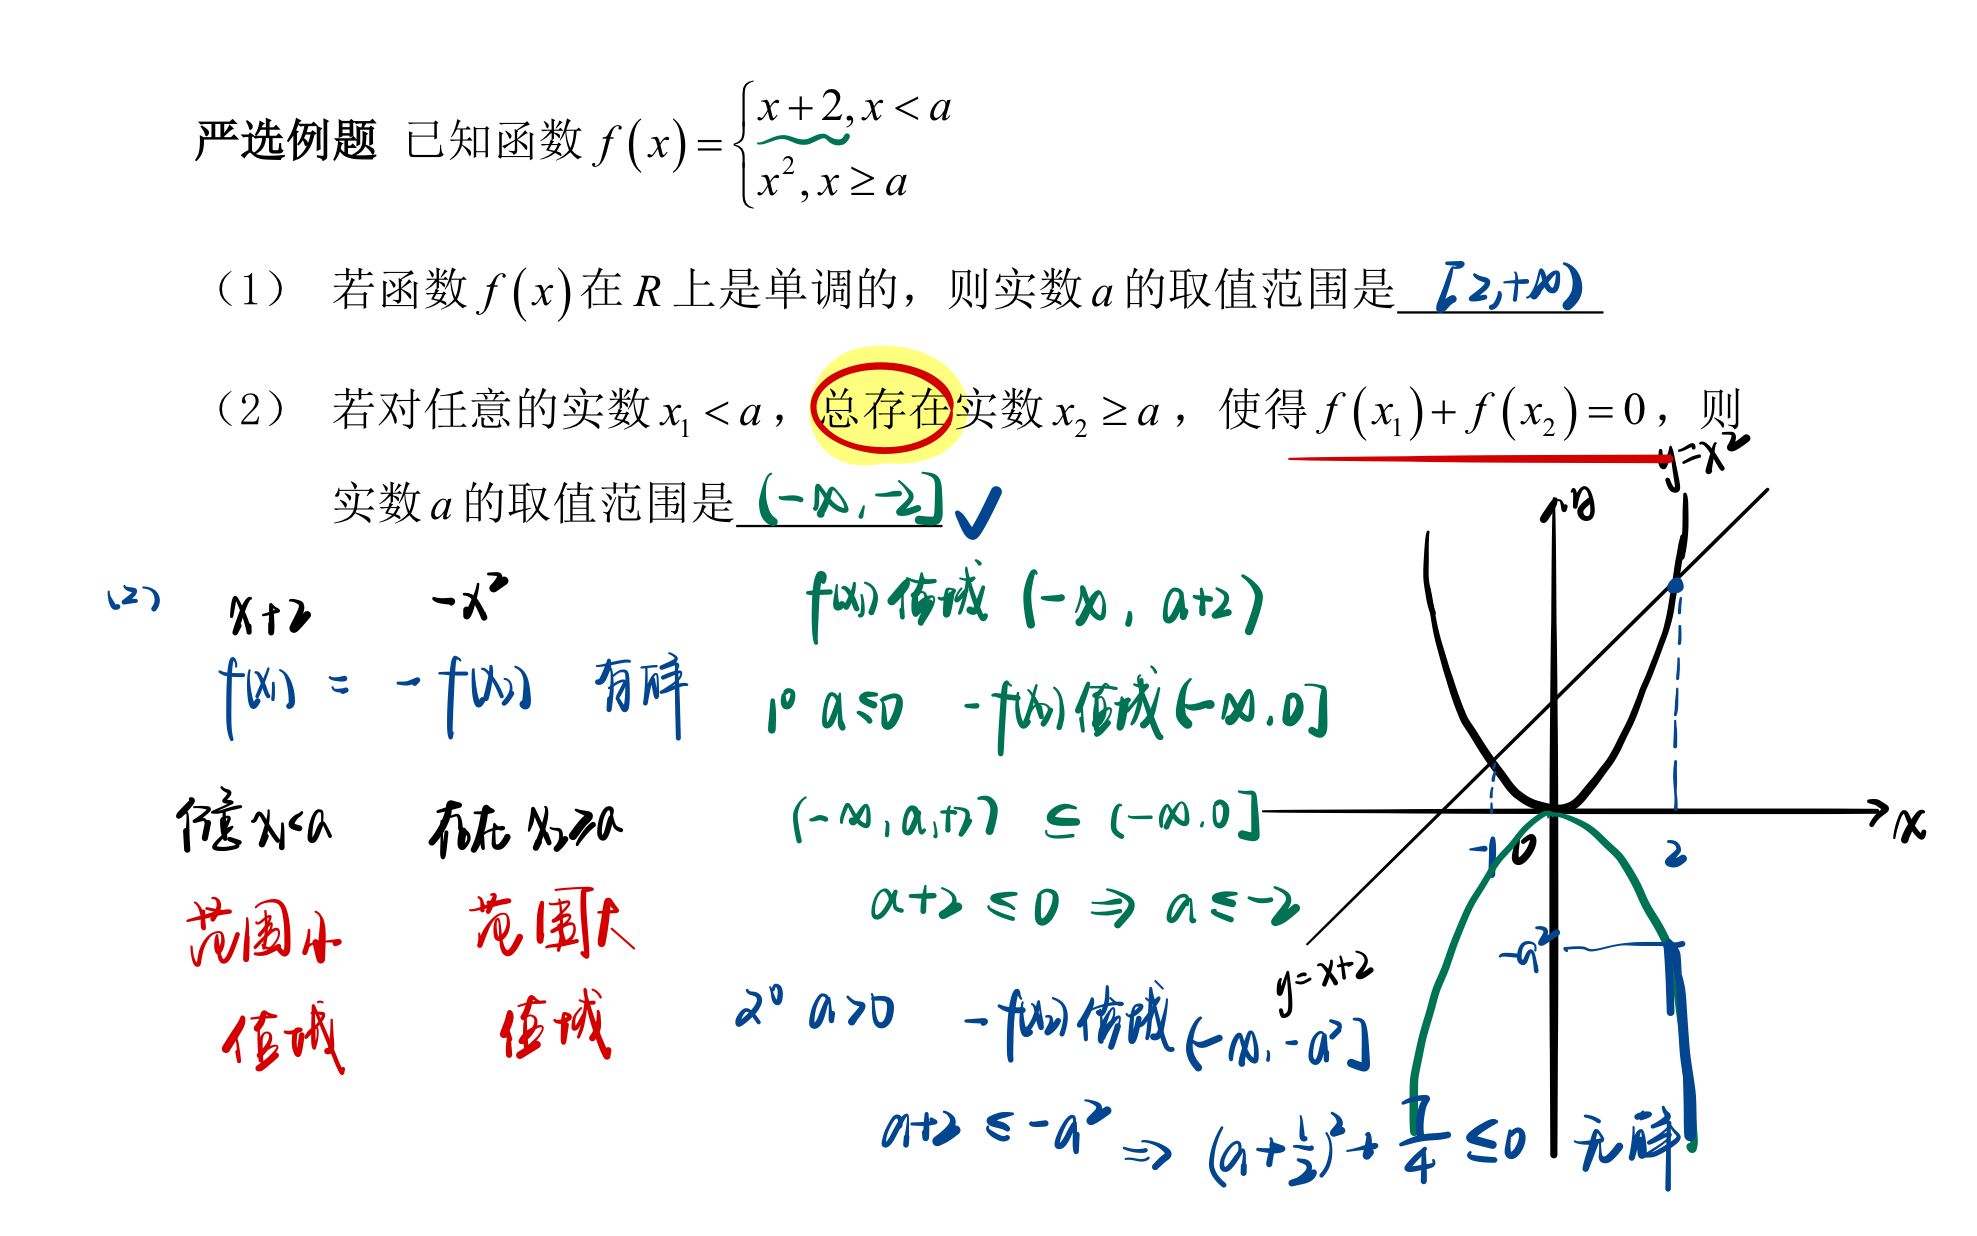 严选例题 已知函数 f(x)={x+2, x<a
x², x≥a
(1) 若函数 f(x) 在 R 上是单调的，则实数 a 的取值范围是 [2,+∞)
(2) 若对任意的实数 x₁<a，总存在实数 x₂≥a，使得 f(x₁)+f(x₂)=0，则
实数 a 的取值范围是 (-∞,-2] ✓
y=x²
y
(2) x+2 -x²
f(x₁) = -f(x₂) 有解
任意 x₁<a 存在 x₂≥a
范围小 范围大
值域 值域
f(x₁) 值域 (-∞, a+2)
1° a≤0 -f(x₂) 值域 (-∞,0]
(-∞,a+2) ⊆ (-∞,0]
a+2 ≤ 0 ⇒ a≤-2
2° a>0 -f(x₂) 值域 (-∞,-a²]
a+2 ≤ -a² ⇒ (a+1/2)²+7/4 ≤0 无解
-1 0 2 x
-a²
y=x+2